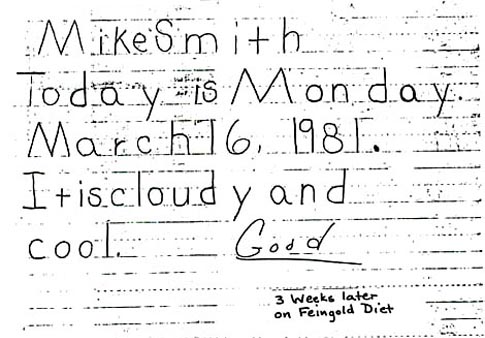 Mike Smith
Today is Monday.
March 16, 1981.
It is cloudy and
cool. Good
3 Weeks later
on Feingold Diet